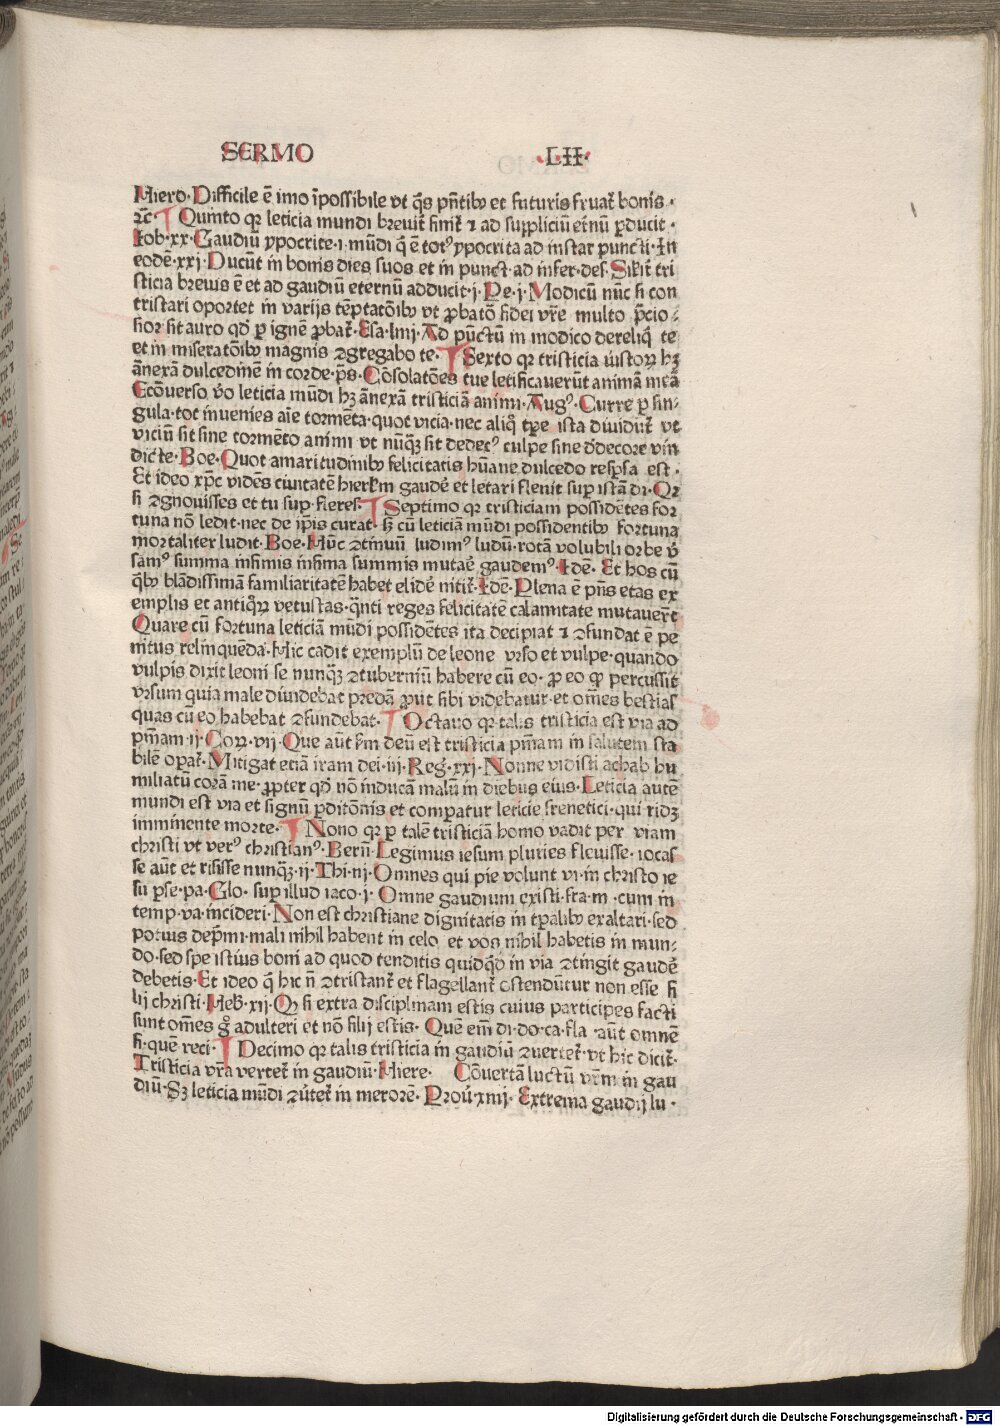 SERMO ·LII·
Hiero· Difficile ē imo īpossibile vt q̄s pn̄tibꝰ et futuris fruat᷑ bonis·
ꝛc̄ ¶ Quinto qꝛ leticia mundi breuit᷑ finit᷑ ⁊ ad suppliciū et̄nū ꝑducit·
Iob·xx· Gaudiū ypocrite·i·mūdi q̇ ē totꝰ ypocrita ad instar puncti· In
eodē·xxj· Ducūt in bonis dies suos et in punct·ad infer·des· Sil̓r tri
sticia breuis ē et ad gaudiū eternū adducit·j·Pe·j· Modicū nūc si con
tristari oportet in varijs tēptatōibꝰ vt ꝓbatō fidei vr̄e multo p̄cio⸗
sior sit auro qd̓ ꝑ ignē ꝓbat᷑· Esa·liiij· Ad pūctū in modico dereliq̇ te
et in miseratōibꝰ magnis ꝯgregabo te· ¶ Sexto qꝛ tristicia iustoꝝ hꝫ
ānexā dulcedinē in corde·ps̄· Cōsolatōes tue letificauerūt animā meā
Ecōuerso v̓o leticia mūdi hꝫ ānexā tristiciā animi· Augꝰ· Curre ꝑ sin⸗
gula·tot inuenies aīe tormēta·quot vicia·nec aliq̇ tꝑe ista diuidūt᷑ vt
viciū sit sine tormēto animi vt nūq̄ꝫ sit dedecꝰ culpe sine d̓decore vin
dicte· Boe· Quot amaritudinibꝰ felicitatis hūane dulcedo respsa est·
Et ideo xp̄c vidēs ciuitatē hierl̓m gaudē et letari fleuit sup istā di· Qꝛ
si ꝯgnouisses et tu sup·fleres· ¶ Septimo qꝛ tristiciam possidētes for
tuna nō ledit·nec de ip̄is curat· sꝫ cū leticiā mūdi possidentibꝰ fortuna
mortaliter ludit· Boe· Hūc ꝯtinuū ludimꝰ ludū·rotā volubili orbe v̓
samꝰ summa infimis infima summis mutaē gaudemꝰ· Idē· Et hos cū
q̇bꝰ blādissimā familiaritatē habet elidē nitit᷑· Idē· Plena ē pn̄s etas ex
emplis et antiq̄ꝝ vetustas·q̄nti reges felicitatē calamitate mutauer̄t
Quare cū fortuna leticiā mūdi possidētes ita decipiat ⁊ ꝯfundat ē pe
nitus relinquēda· Hic cadit exemplū de leone vrso et vulpe·quando
vulpis dixit leoni se nunqꝫ ꝯtuberniū habere cū eo· ꝓ eo ꝙ percussit
vrsum quia male diuidebat predā ꝓut sibi videbatur·et om̄es bestias
quas cū eo habebat ꝯfundebat· ¶ Octauo qꝛ talis tristicia est via ad
pm̄am·ij·Corꝝ·vij· Que aūt s̄m deū est tristicia pm̄am in salutem sta
bilē opat᷑· Mitigat etiā iram dei·iij·Reg̓·xxj· Nonne vidisti achab hu
miliatū corā me· ꝓpter qd̓ nō inducā malū in diebus eius· Leticia autē
mundi est via et signū ꝑditōnis et comꝑatur leticie frenetici·qui ridꝫ
imminente morte· ¶ Nono qꝛ ꝑ talē tristiciā homo vadit per viam
christi vt verꝰ christianꝰ· Bern̄· Legimus iesum pluries fleuisse· iocas
se aūt et risisse nunqꝫ·ij·Thi·iij· Omnes qui pie volunt vi·in christo ie
su ꝑse·pa· Glo· sup illud iaco·j· Omne gaudium existi·fra·m·cum in
temp·va·incideri· Non est christiane dignitatis in tꝑalibꝰ exaltari·sed
potius dep̄mi·mali nihil habent in celo et vos nihil habetis in mun⸗
do·sed spe istius boni ad quod tenditis quidq̄d in via ꝯtingit gaudē
debetis· Et ideo q̇ hic n̄ ꝯtristant᷑ et flagellant᷑ ostendūtur non esse fi
lij christi· Heb·xij· Ꝙ si extra disciplinam estis cuius participes facti
sunt om̄es g̊ adulteri et nō filij estis· Quē em̄ di·do·ca·fla·aūt omnē
fi·quē reci· ¶ Decimo qꝛ talis tristicia in gaudiū ꝯuertet᷑·vt hic dicit᷑·
Tristicia vr̄a vertet᷑ in gaudiū· Hiere· Cōuertā luctū vr̄m in gau
diū· Sꝫ leticia mūdi ꝯūtet᷑ in merorē· Prou̓·xiiij· Extrema gaudij lu·
Digitalisierung gefördert durch die Deutsche Forschungsgemeinschaft - DFG